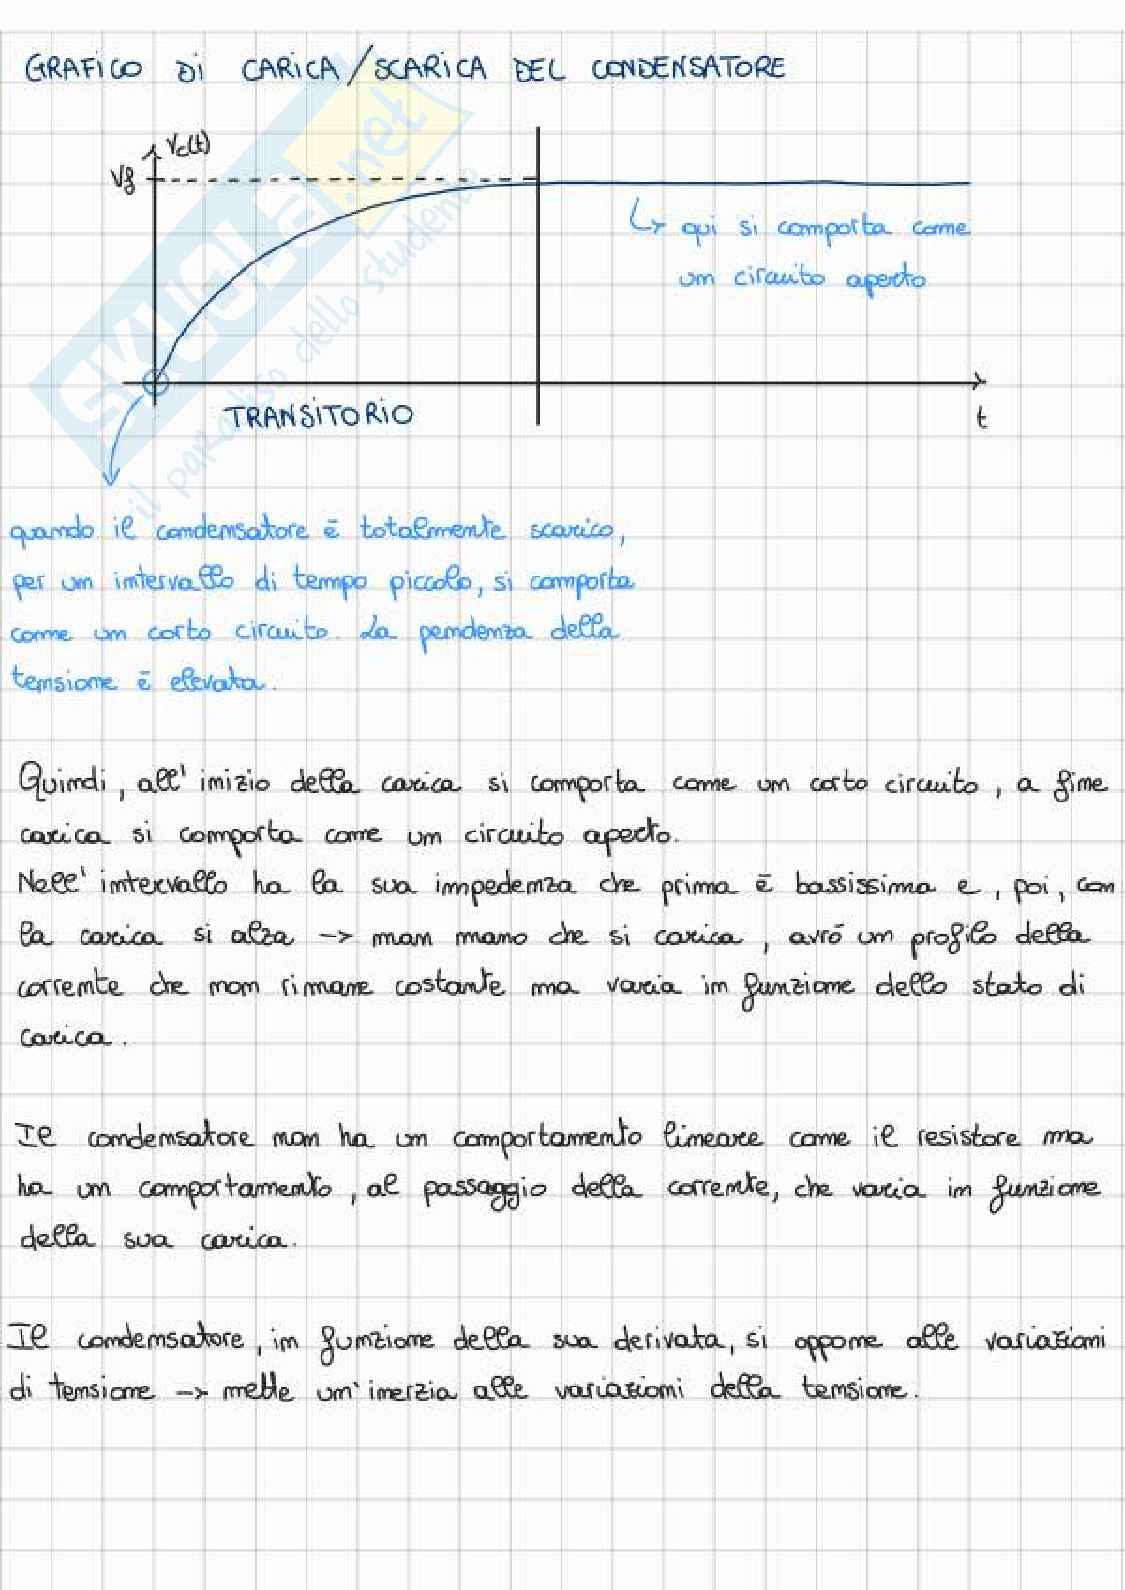 GRAFICO DI CARICA/SCARICA DEL CONDENSATORE
Vc(t)
Vf
qui si comporta come
un circuito aperto
TRANSITORIO
t
SKUOLA.net
il paradiso dello studente
quando il condensatore è totalmente scarico,
per un intervallo di tempo piccolo, si comporta
come un corto circuito. La pendenza della
tensione è elevata.
Quindi, all'inizio della carica si comporta come un corto circuito, a fine
carica si comporta come un circuito aperto.
Nell'intervallo ha la sua impedenza che prima è bassissima e, poi, con
la carica si alza -> man mano che si carica, avrò un profilo della
corrente che non rimane costante ma varia in funzione dello stato di
carica.
Il condensatore non ha un comportamento lineare come il resistore ma
ha un comportamento, al passaggio della corrente, che varia in funzione
della sua carica.
Il condensatore, in funzione della sua derivata, si oppone alle variazioni
di tensione -> mette un'inerzia alle variazioni della tensione.